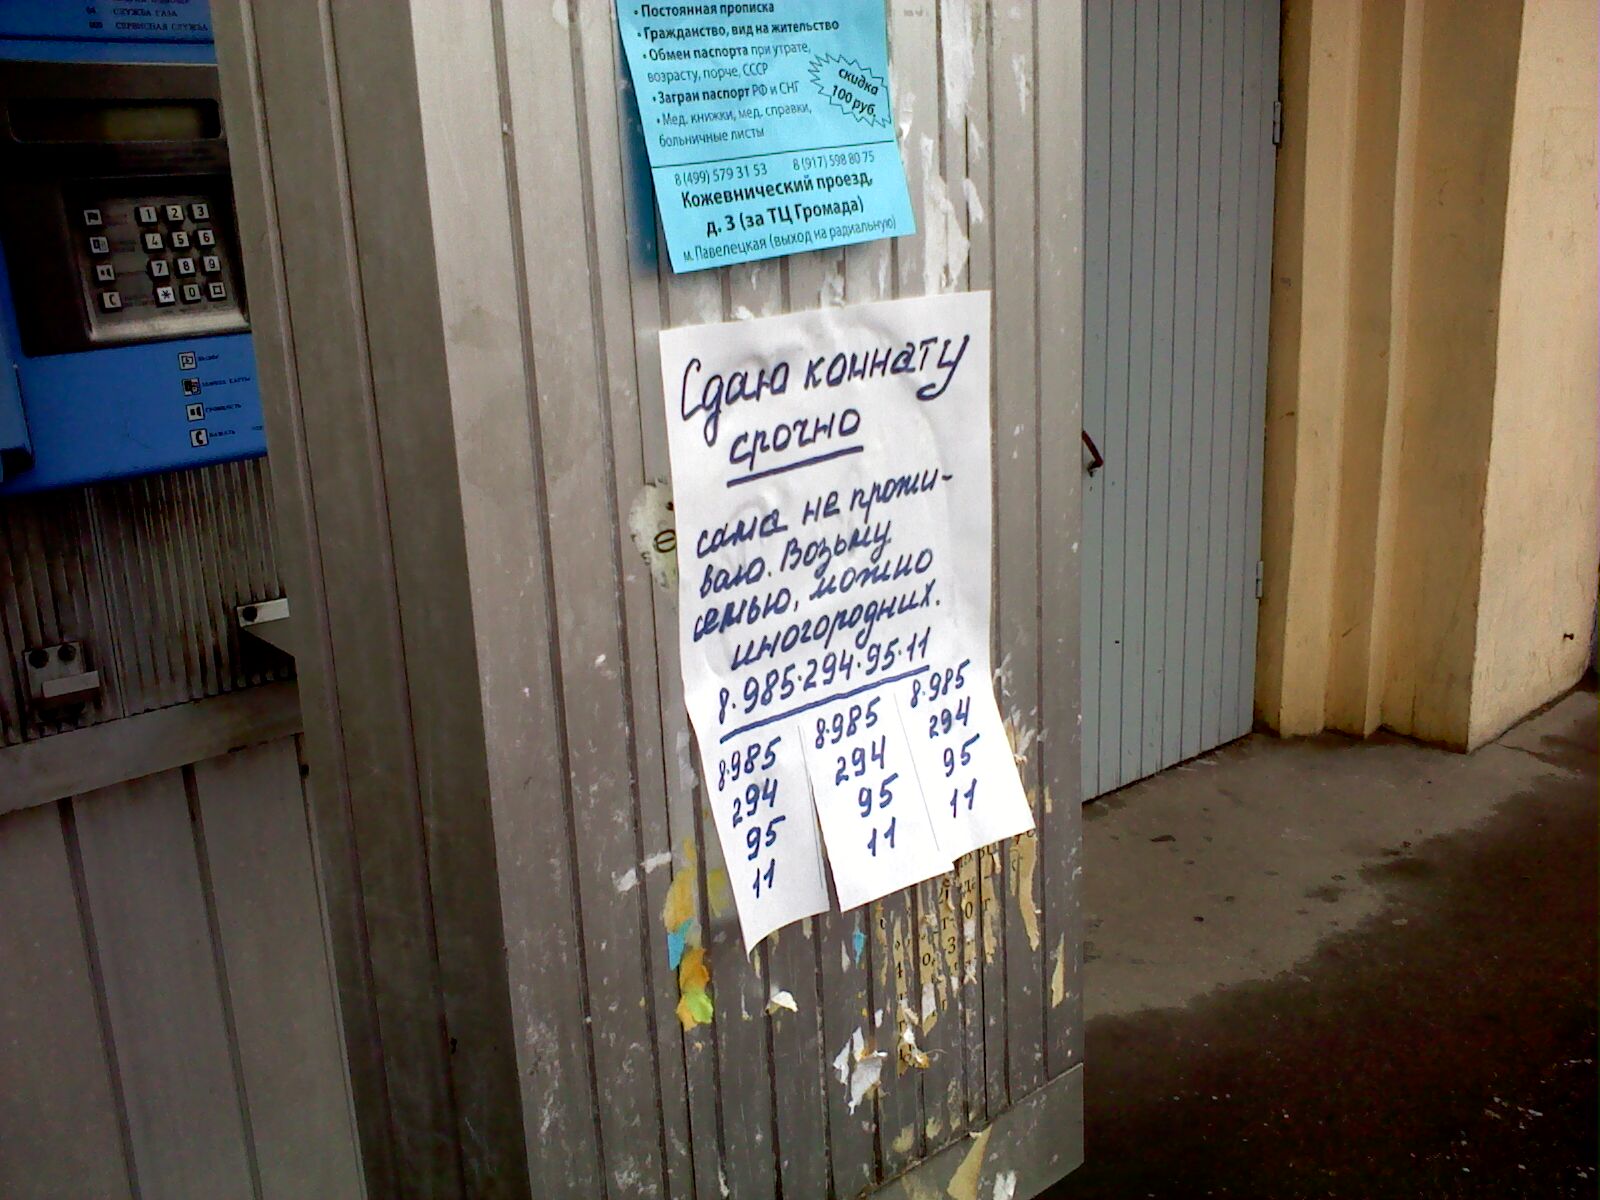 04 СЛУЖБА ГАЗА
СЕРВИСНАЯ СЛУЖБА
1 2 3
4 5 6
7 8 9
* 0
ГРОМКОСТЬ
НАЖАТЬ
• Постоянная прописка
• Гражданство, вид на жительство
• Обмен паспорта при утрате,
возрасту, порче, СССР
• Загран паспорт РФ и СНГ
• Мед. книжки, мед. справки,
больничные листы
скидка
100 руб.
8 (499) 579 31 53 8 (917) 598 80 75
Кожевнический проезд,
д. 3 (за ТЦ Громада)
м. Павелецкая (выход на радиальную)
Сдаю комнату
срочно
сама не прожи-
ваю. Возьму
семью, можно
иногородних.
8·985·294·95·11
8·985
294
95
11
8·985
294
95
11
8·985
294
95
11
е